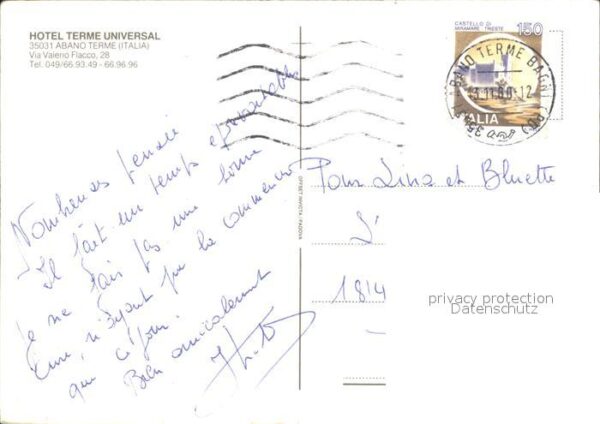 HOTEL TERME UNIVERSAL
35031 ABANO TERME (ITALIA)
Via Valerio Flacco, 28
Tel. 049/66.93.49 - 66.96 96
CASTELLO DI
MIRAMARE TRIESTE
150
ITALIA
ABANO TERME BAGNI (PD)
35031
Nombreuses pensées
Il fait un temps épouvantable
Je ne fais pas une bonne
Cure, n'ayant pu la commencer
que ce jour.
Bien amicalement
OFFSET INVICTA - PADOVA
Pour Lina et Bluette
1814
privacy protection
Datenschutz